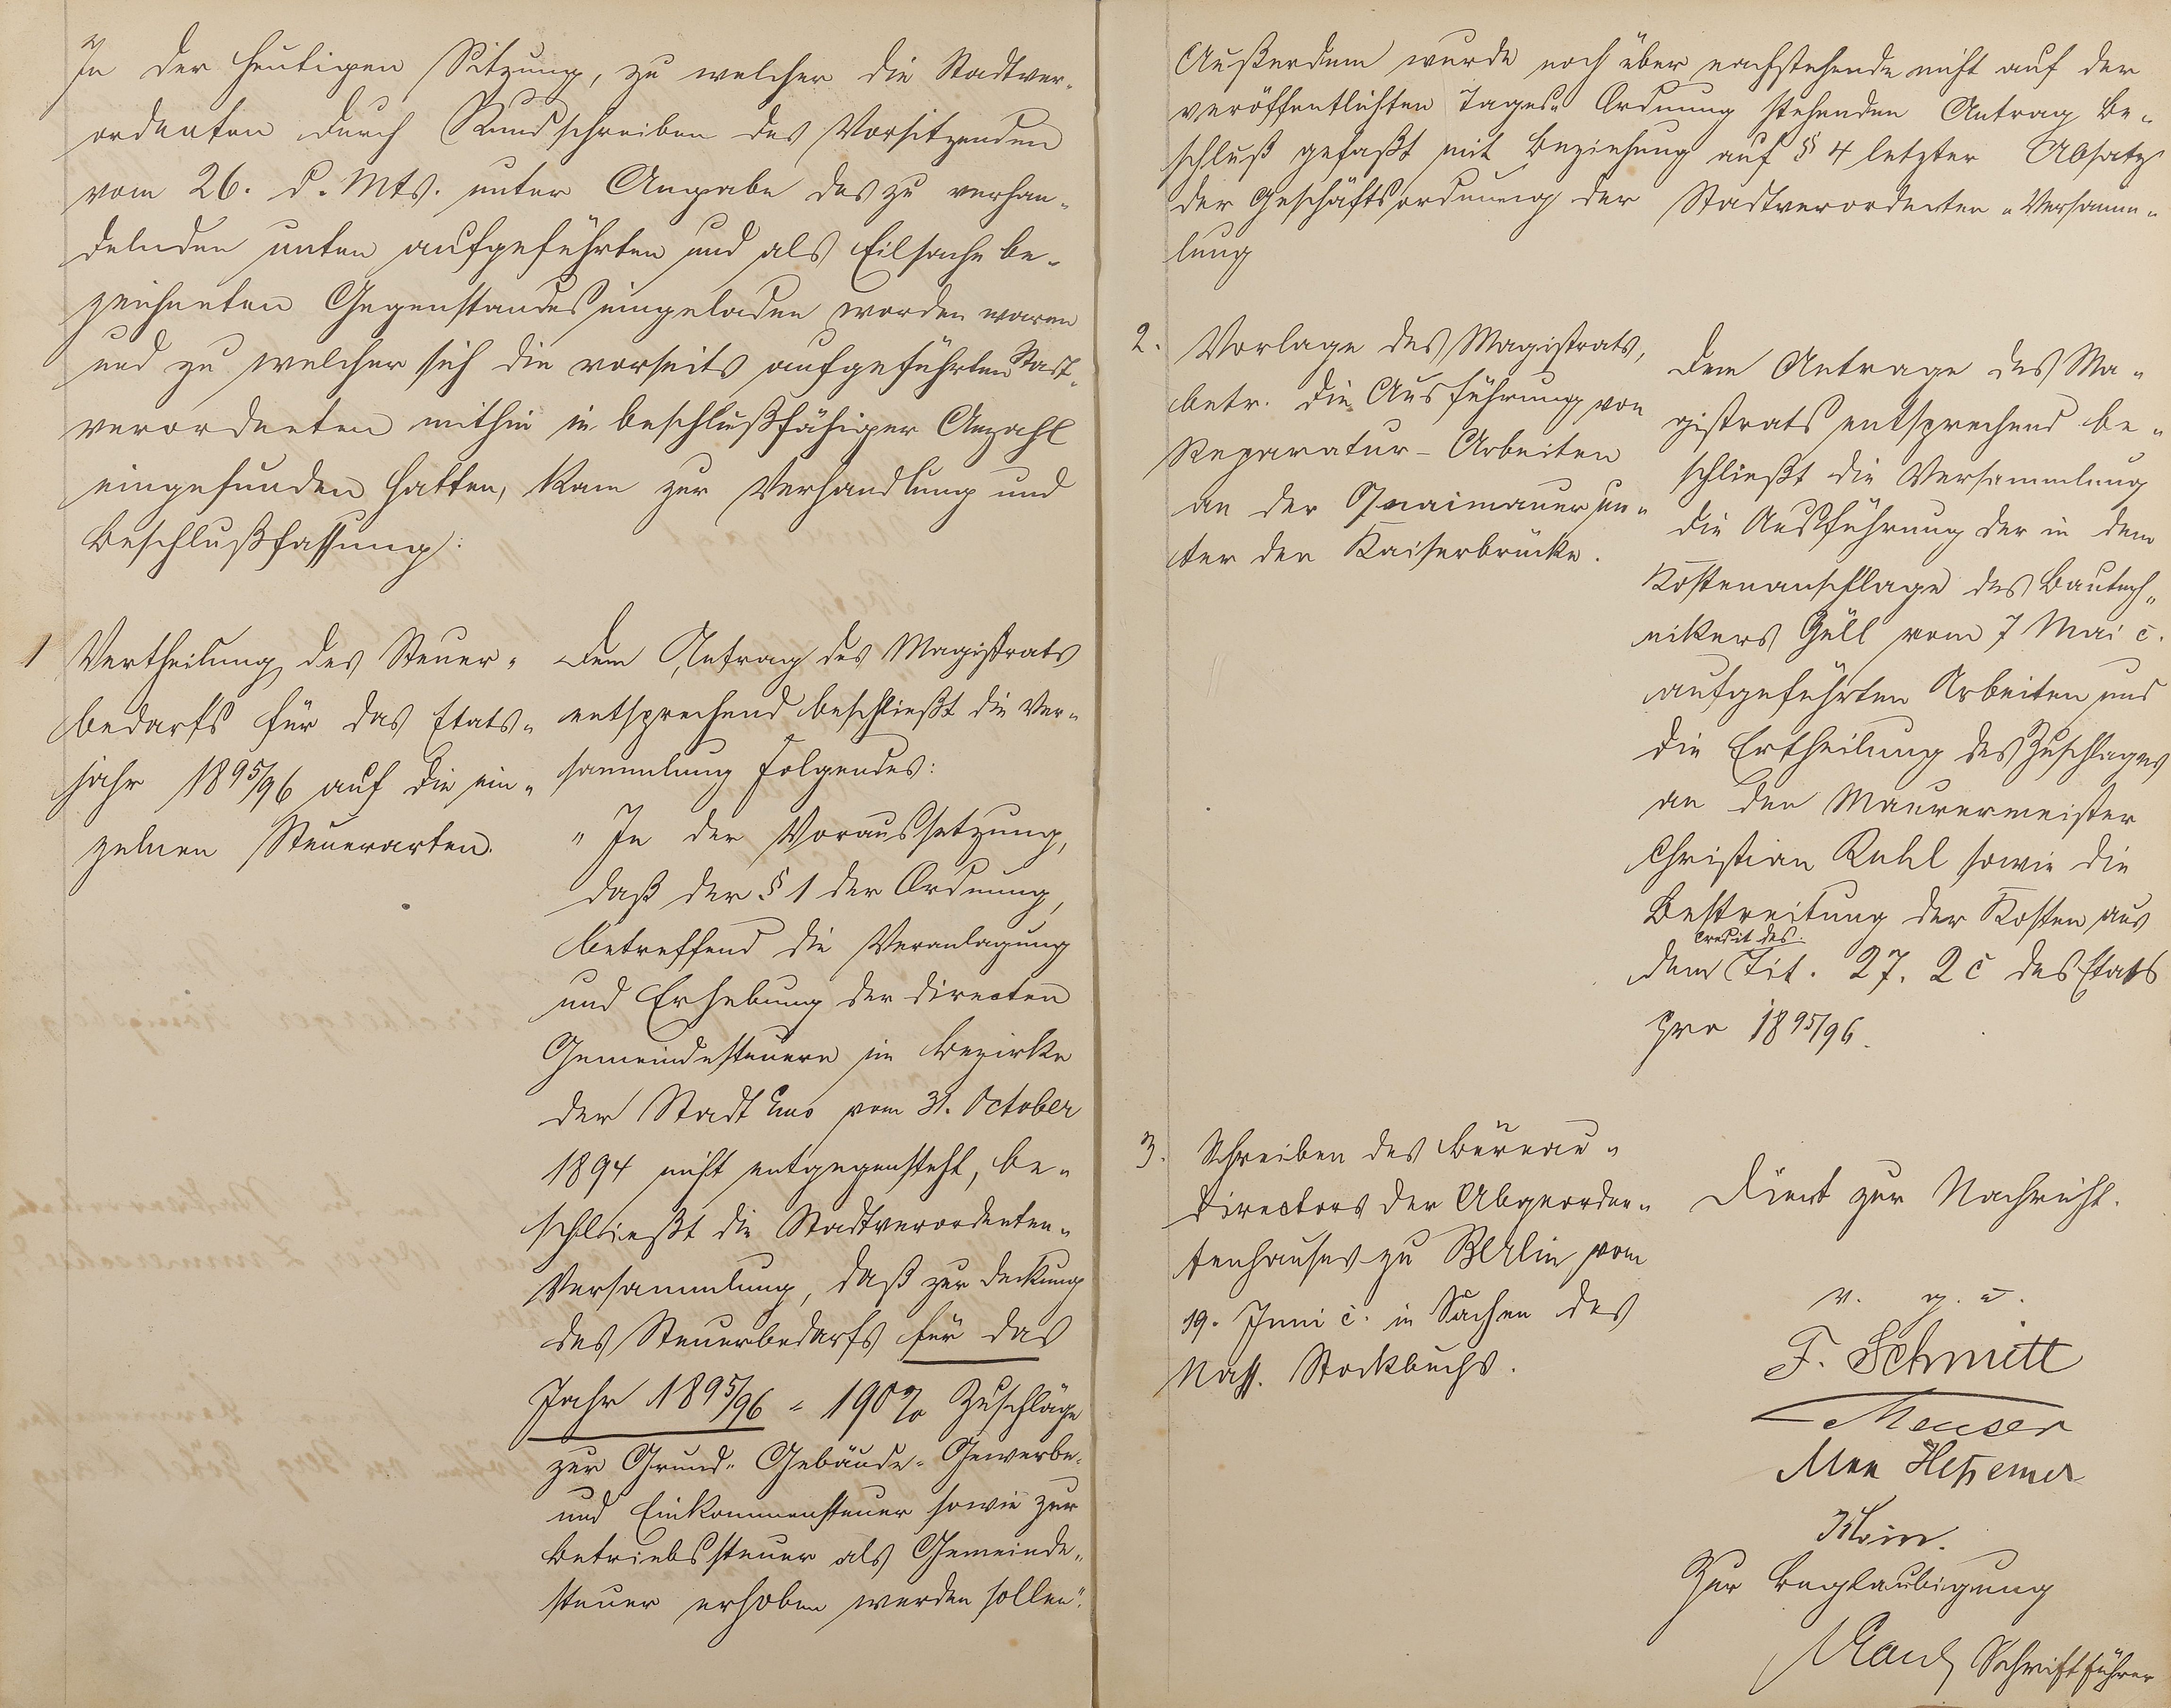 In der heutigen Sitzung, zu welcher die Stadtver-
ordneten durch Rundschreiben des Vorsitzenden
vom 26. d. Mts. unter Angabe des zu verhan-
delnden unten aufgeführten und als Eilsache be-
zeichneten Gegenstandes eingeladen worden waren
und zu welcher sich die vorseits aufgeführten Stadt-
verordneten mithin in beschlußfähiger Anzahl
eingefunden hatten, kam zur Verhandlung und
Beschlußfassung:
1 Vertheilung des Steuer-
bedarfs für das Etats-
jahr 1895/96 auf die ein-
zelnen Steuerarten.
Dem Antrag des Magistrats
entsprechend beschließt die Ver-
sammlung Folgendes:
"In der Voraussetzung,
daß der § 1 der Ordnung,
betreffend die Veranlagung
und Erhebung der directen
Gemeindesteuern im Bezirke
der Stadt Ems vom 31. October
1894 nicht entgegensteht, be-
schließt die Stadtverordneten-
Versammlung, daß zur Deckung
des Steuerbedarfs für das
Jahr 1895/96 - 190% Zuschläge
zur Grund- Gebäude- Gewerbe-
und Einkommensteuer sowie zur
Betriebssteuer als Gemeinde-
steuer erhoben werden sollen".
Außerdem wurde noch über nachstehende nicht auf der
veröffentlichten Tages-Ordnung stehenden Antrag Be-
schluß gefaßt mit Beziehung auf § 4 letzter Absatz
der Geschäftsordnung der Stadtverordneten-Versamm-
lung
2. Vorlage des Magistrats,
betr. die Ausführung von
Reparatur-Arbeiten
an der Quaimauer un-
ter der Kaiserbrücke.
Dem Antrage des Ma-
gistrats entsprechend be-
schließt die Versammlung
die Ausführung der in dem
Kostenanschlage des Bautech-
nikers Güll vom 7 Mai c.
aufgeführten Arbeiten und
die Ertheilung des Zuschlages
an den Maurermeister
Christian Ruhl sowie die
Bestreitung der Kosten aus
credit des
dem Tit. 27. 2c des Etats
pro 1895/96.
3. Schreiben des Büreau-
directors der Abgeordne-
tenhauses zu Berlin vom
19. Juni c. in Sachen des
Nass. Stockbuchs.
Dient zur Nachricht.
v. g. u.
F. Schmitt
Meuser
Klein.
Zur Beglaubigung
Schriftführer